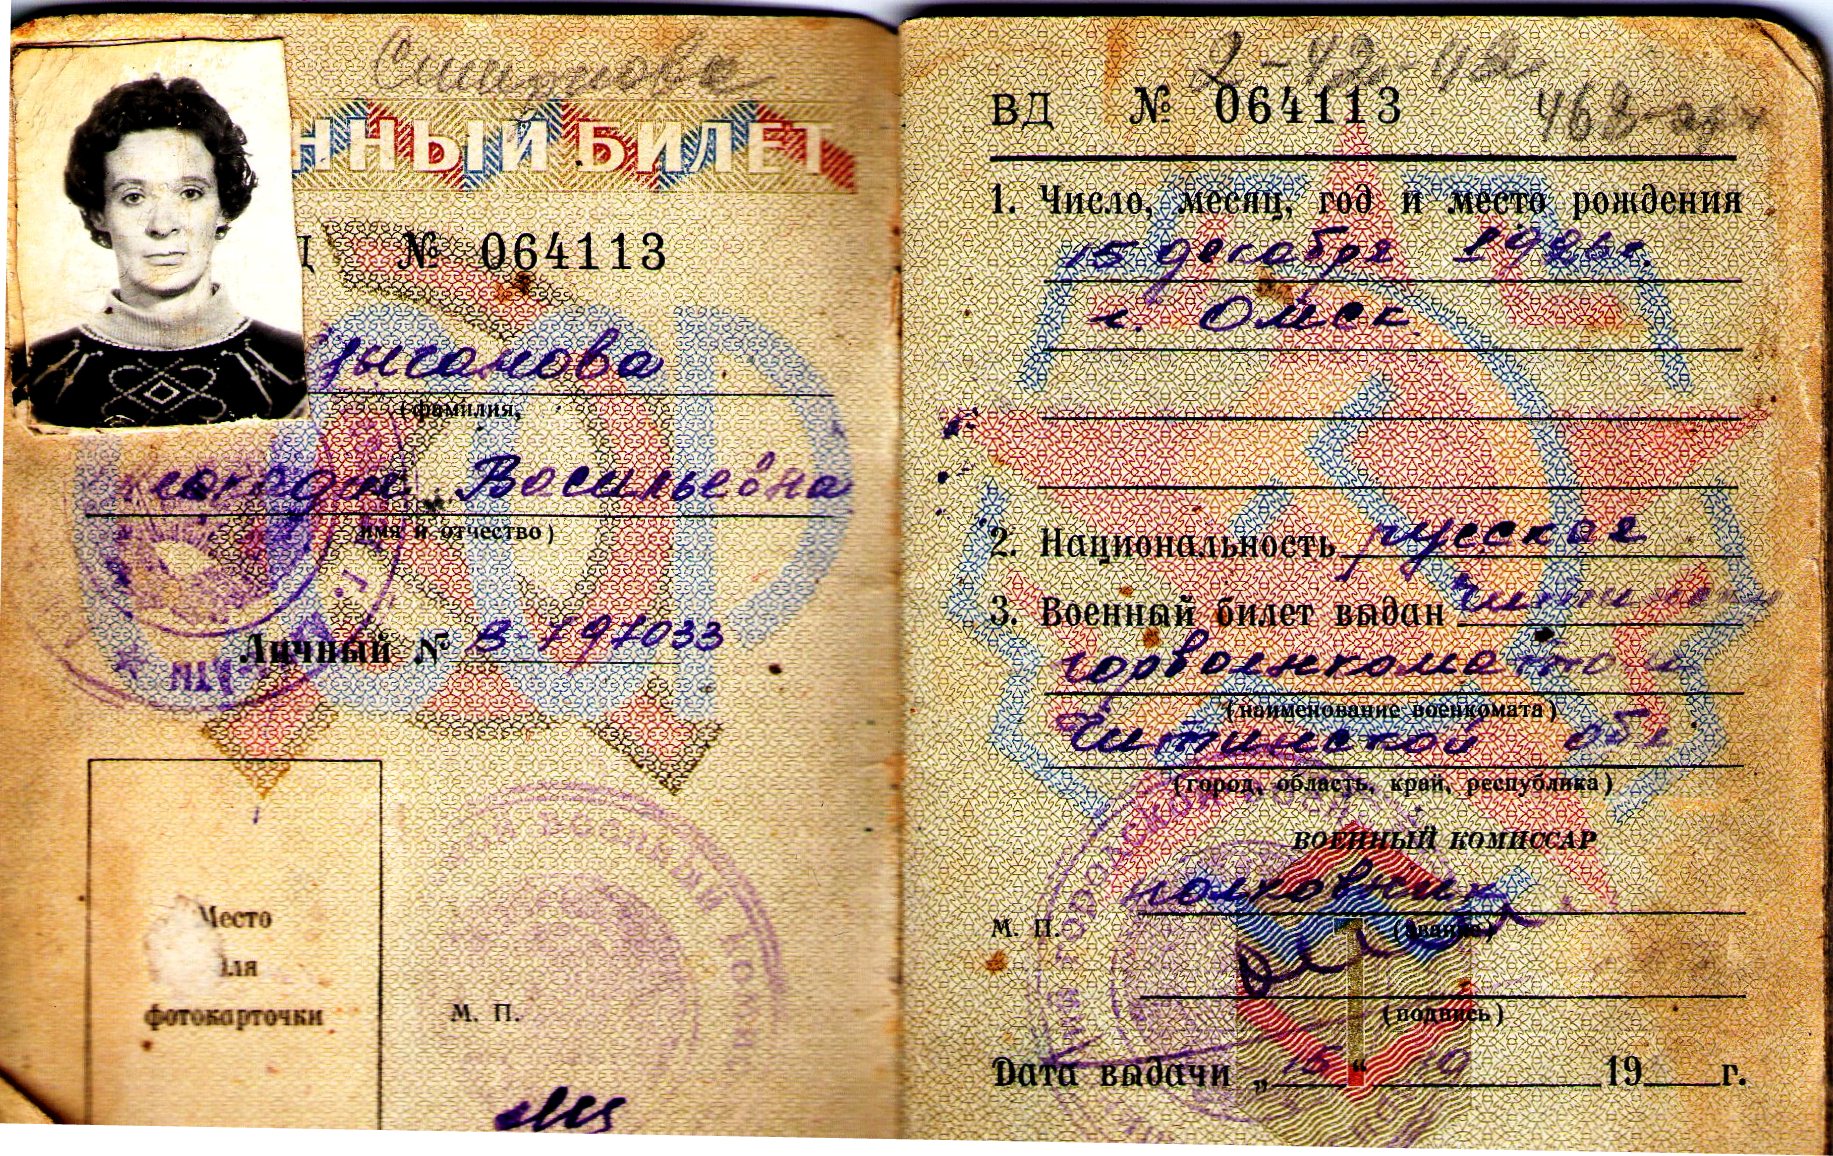 Смирнова
ННЫЙ БИЛЕТ
№ 064113
(фамилия,
Васильевна
имя и отчество)
Личный № В-797033
Место
для
фотокарточки
М. П.
2-42-42
ВД № 064113
1. Число, месяц, год и место рождения
15 декабря
г. Омск
2. Национальность русская
3. Военный билет выдан Читинским
горвоенкоматом
(наименование военкомата)
Читинской обл
(город, область, край, республика)
ВОЕННЫЙ КОМИССАР
полковник
М. П. (звание)
(подпись)
Дата выдачи „15“ 10 19 г.